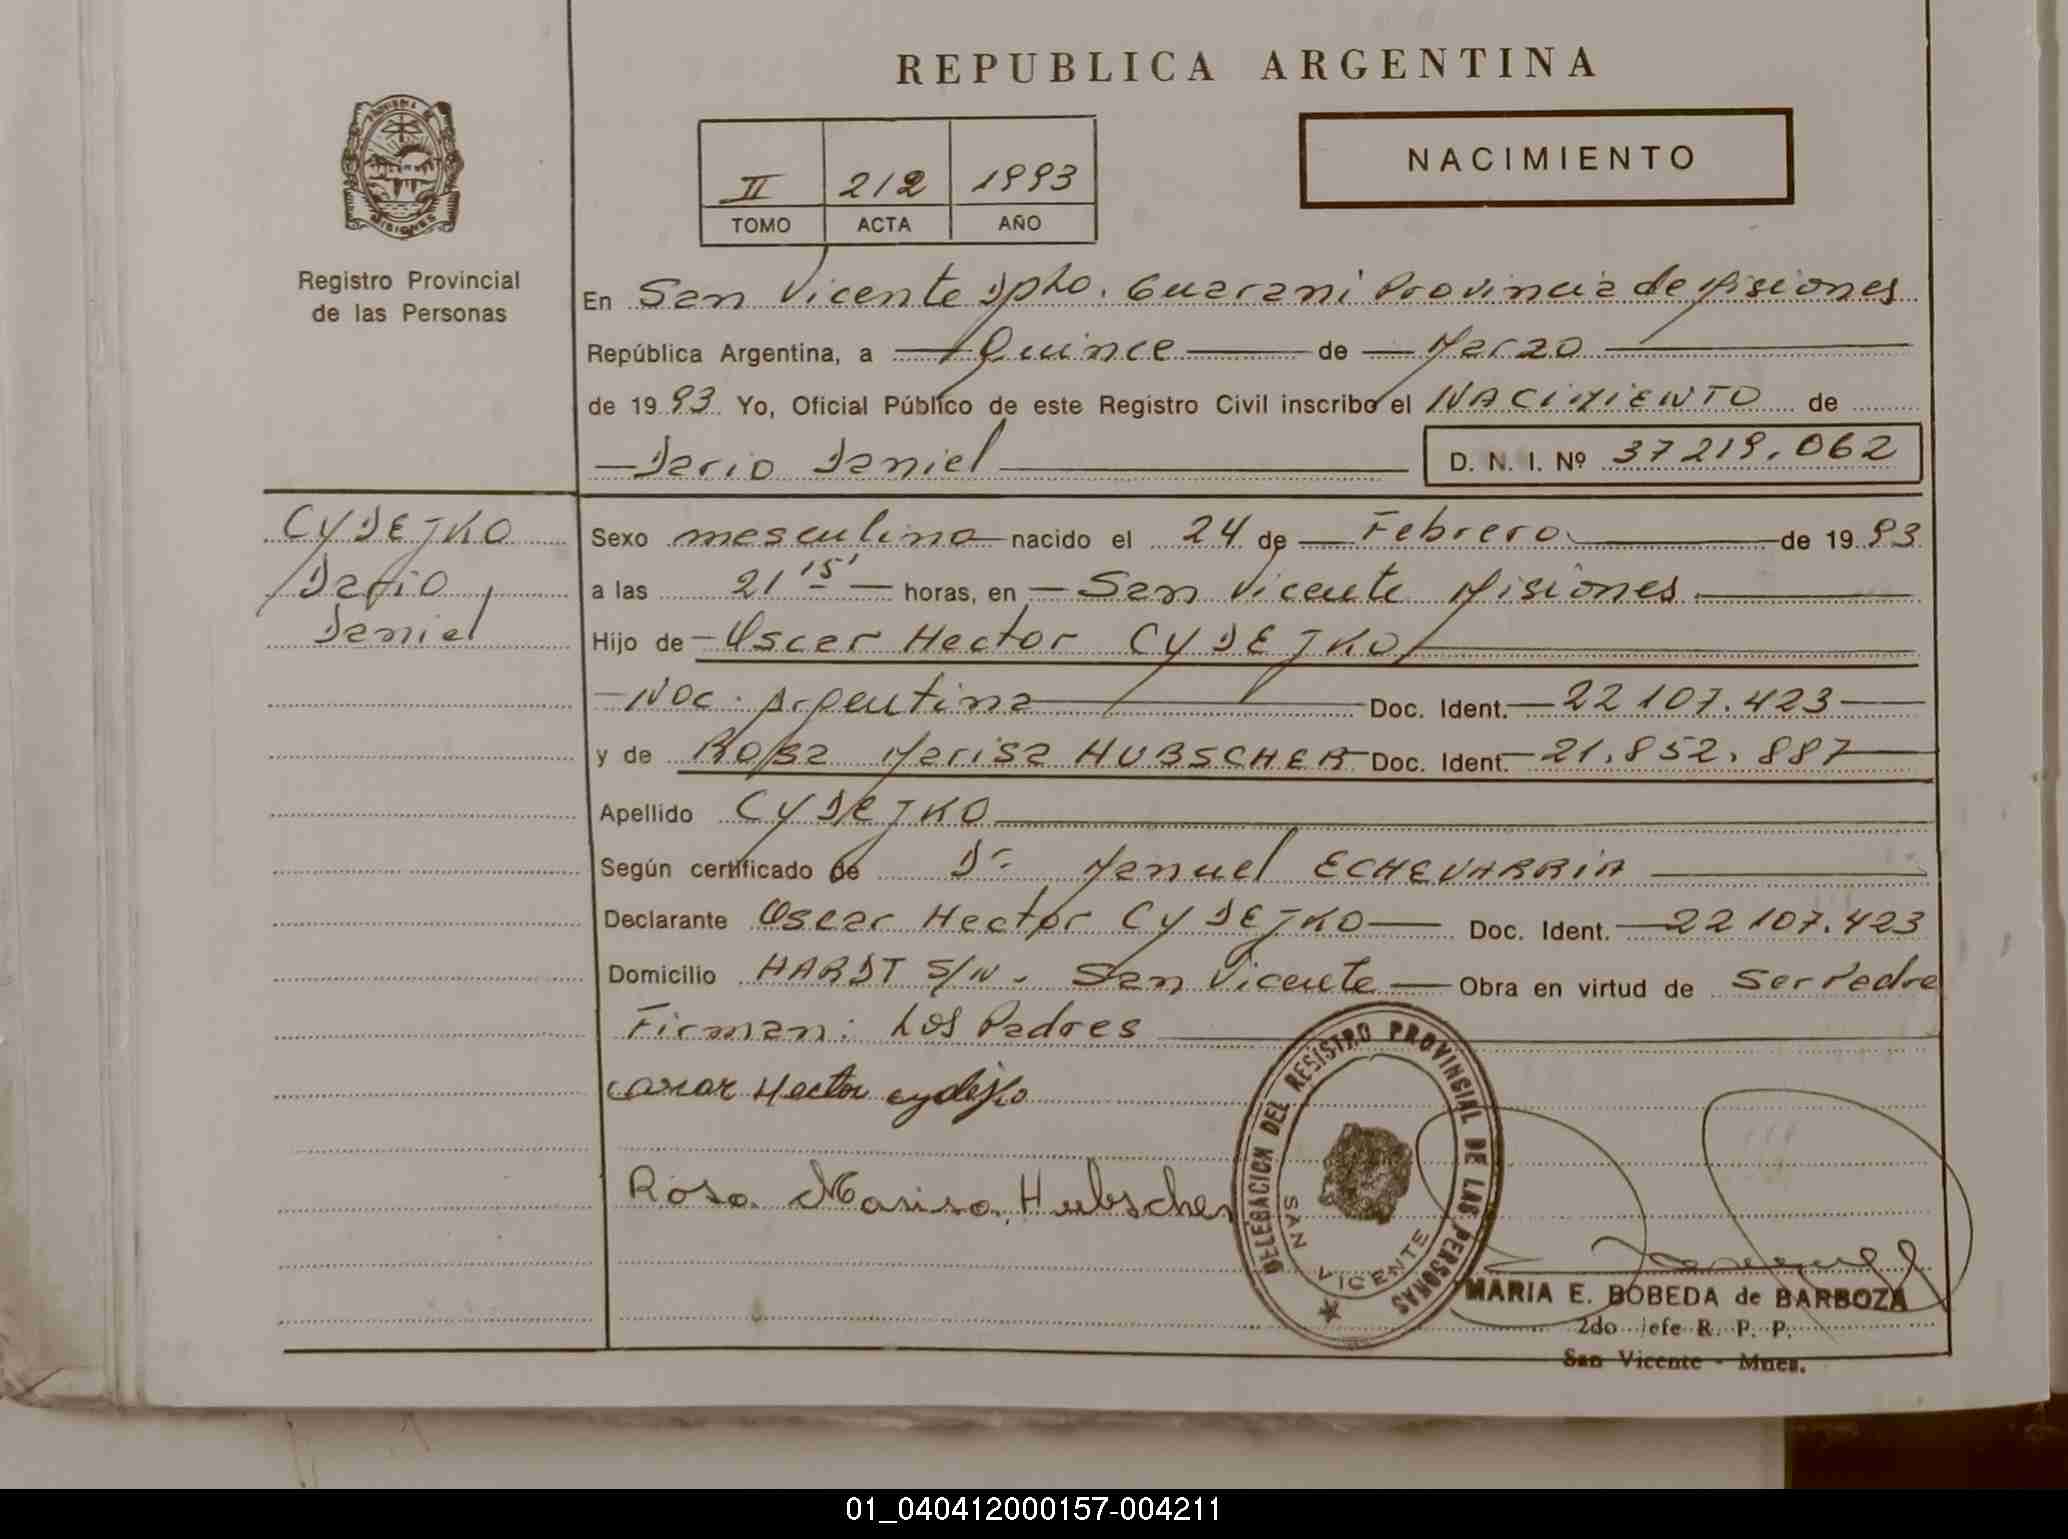 REPUBLICA ARGENTINA
NACIMIENTO
II 212 1993
TOMO ACTA AÑO
MISIONES
Registro Provincial
de las Personas
En San Vicente Dpto. Guarani Provincia de Misiones
República Argentina, a Quince de Marzo
de 1993 Yo, Oficial Público de este Registro Civil inscribo el NACIMIENTO de
Dario Daniel D. N. I. Nº 37219.062
CYDEJKO
Dario
Daniel
Sexo masculino nacido el 24 de Febrero de 1993
a las 21 15' horas, en San Vicente Misiones
Hijo de Oscar Hector CYDEJKO
Nac. Argentina Doc. Ident. 22107.423
y de Rosa Marisa HUBSCHER Doc. Ident. 21.852.887
Apellido CYDEJKO
Según certificado de Dr. Manuel ECHEVARRIA
Declarante Oscar Hector CYDEJKO Doc. Ident. 22107.423
Domicilio HARDT S/N. San Vicente Obra en virtud de Ser Padre
Firman: Los Padres
oscar Hector cydejko
Rosa Marisa Hubscher
DELEGACION DEL REGISTRO PROVINCIAL DE LAS PERSONAS
SAN VICENTE
MARIA E. BOBEDA de BARBOZA
2do jefe R. P. P.
San Vicente - Mnes.
01_040412000157-004211